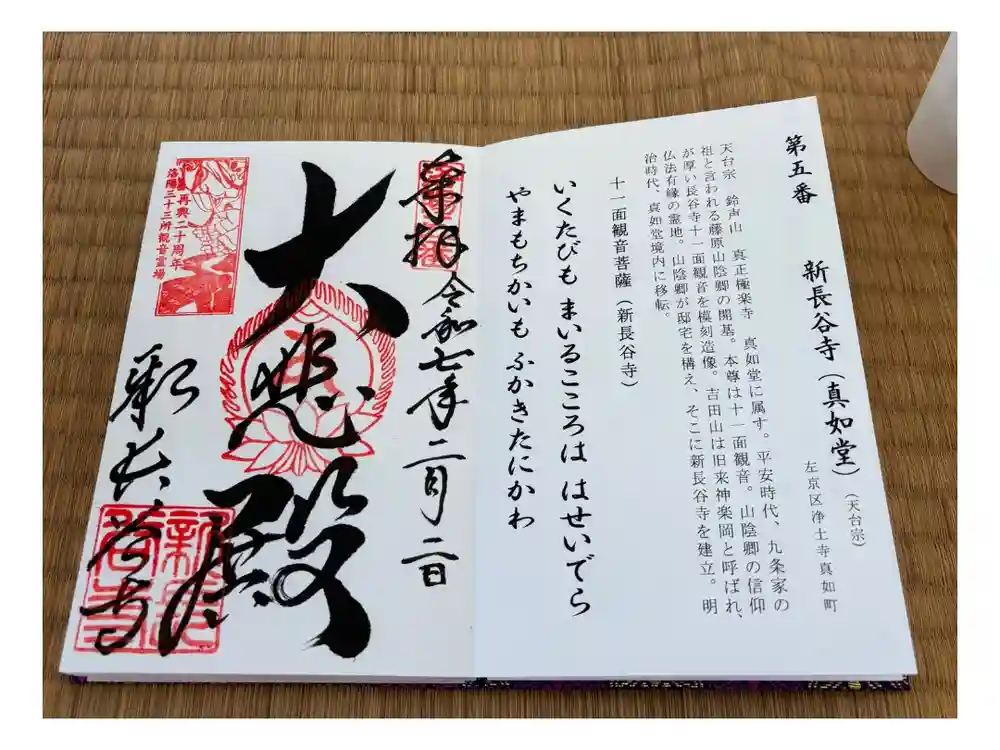 第五番　新長谷寺（真如堂）
（天台宗）
左京区浄土寺真如町
天台宗　鈴声山　真正極楽寺　真如堂に属す。平安時代、九条家の
祖と言われる藤原山陰卿の開基。本尊は十一面観音。山陰卿の信仰
が厚い長谷寺十一面観音を模刻造像。吉田山は旧来神楽岡と呼ばれ、
仏法有縁の霊地。山陰卿が邸宅を構え、そこに新長谷寺を建立。明
治時代、真如堂境内に移転。
十一面観音菩薩（新長谷寺）
いくたびも まいるこころは はせいでら
やまもちかいも ふかきたにかわ
奉拝 令和七年 二月 二日
大悲殿
新長谷寺
再興二十周年
洛陽三十三所観音霊場
新長谷寺